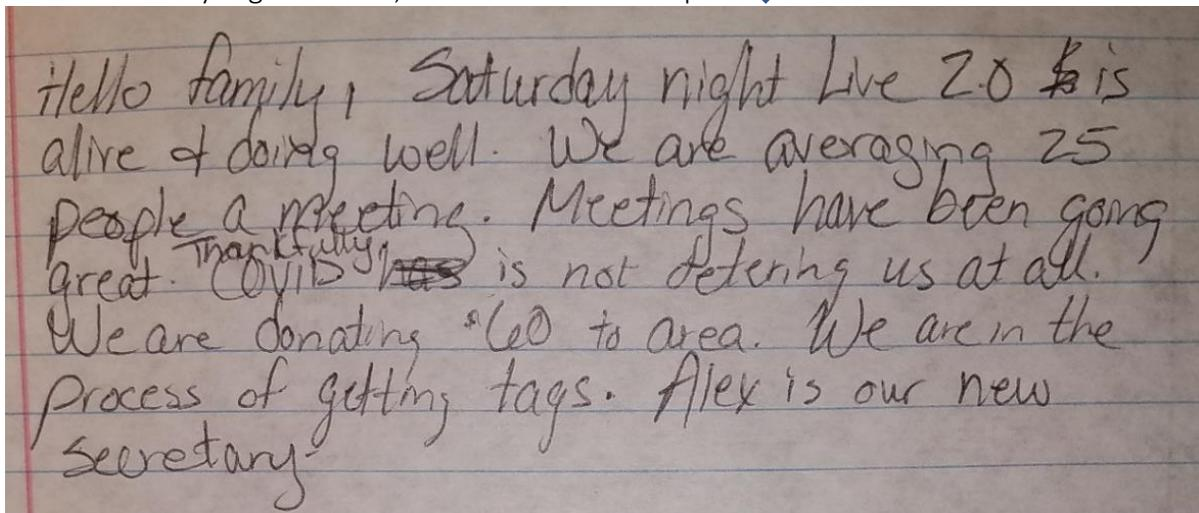 Hello family, Saturday night Live 2.0 is
alive & doing well. We are averaging 25
people a meeting. Meetings have been going
great. Thankfully, COVID is not detering us at all.
We are donating $60 to area. We are in the
process of getting tags. Alex is our new
secretary.